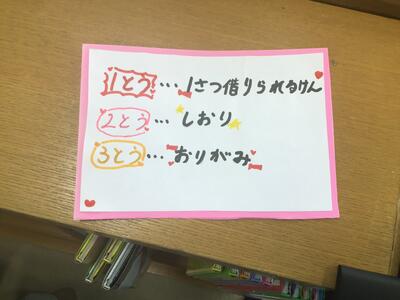 1とう…1さつ借りられるけん
2とう…しおり
3とう…おりがみ